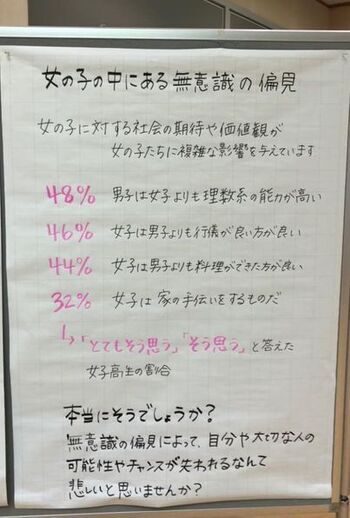 女の子の中にある無意識の偏見
女の子に対する社会の期待や価値観が
女の子たちに複雑な影響を与えています
48% 男子は女子よりも理数系の能力が高い
46% 女子は男子よりも行儀が良い方が良い
44% 女子は男子よりも料理ができた方が良い
32% 女子は家の手伝いをするものだ
↳「とてもそう思う」「そう思う」と答えた
女子高生の割合
本当にそうでしょうか?
無意識の偏見によって、自分や大切な人の
可能性やチャンスが失われるなんて
悲しいと思いませんか?